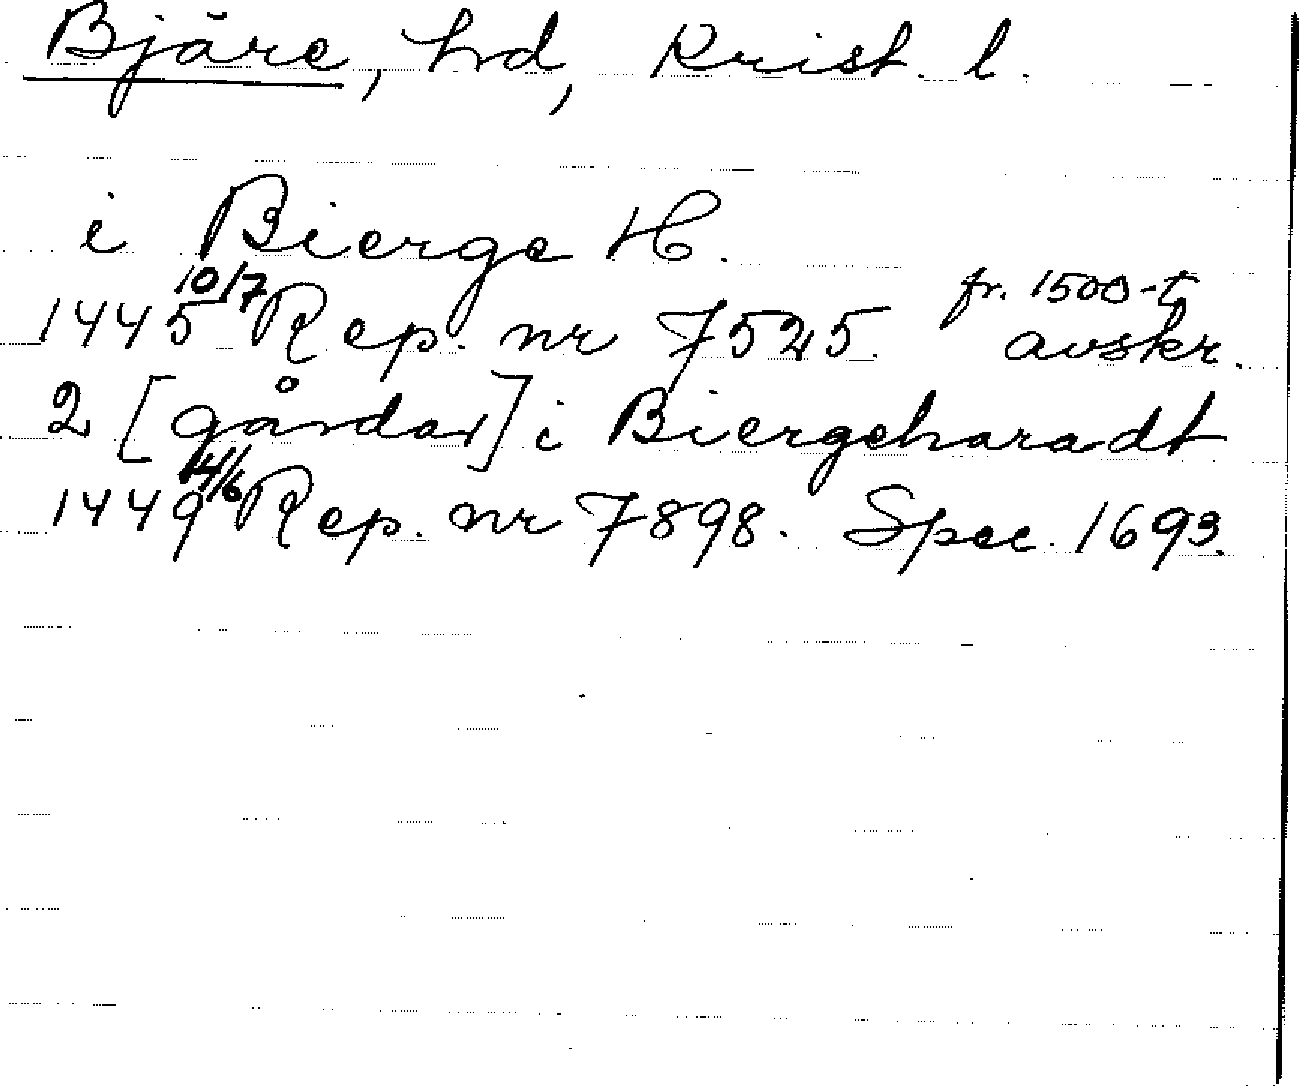 Bjäre, hd, Krist. l.
i Bierge H.
1445 10/7 Rep. nr 7525. fr. 1500-t avskr.
2 [gårdar] i Biergeharadt
1449 14/6 Rep. nr 7898. Spec. 1693.